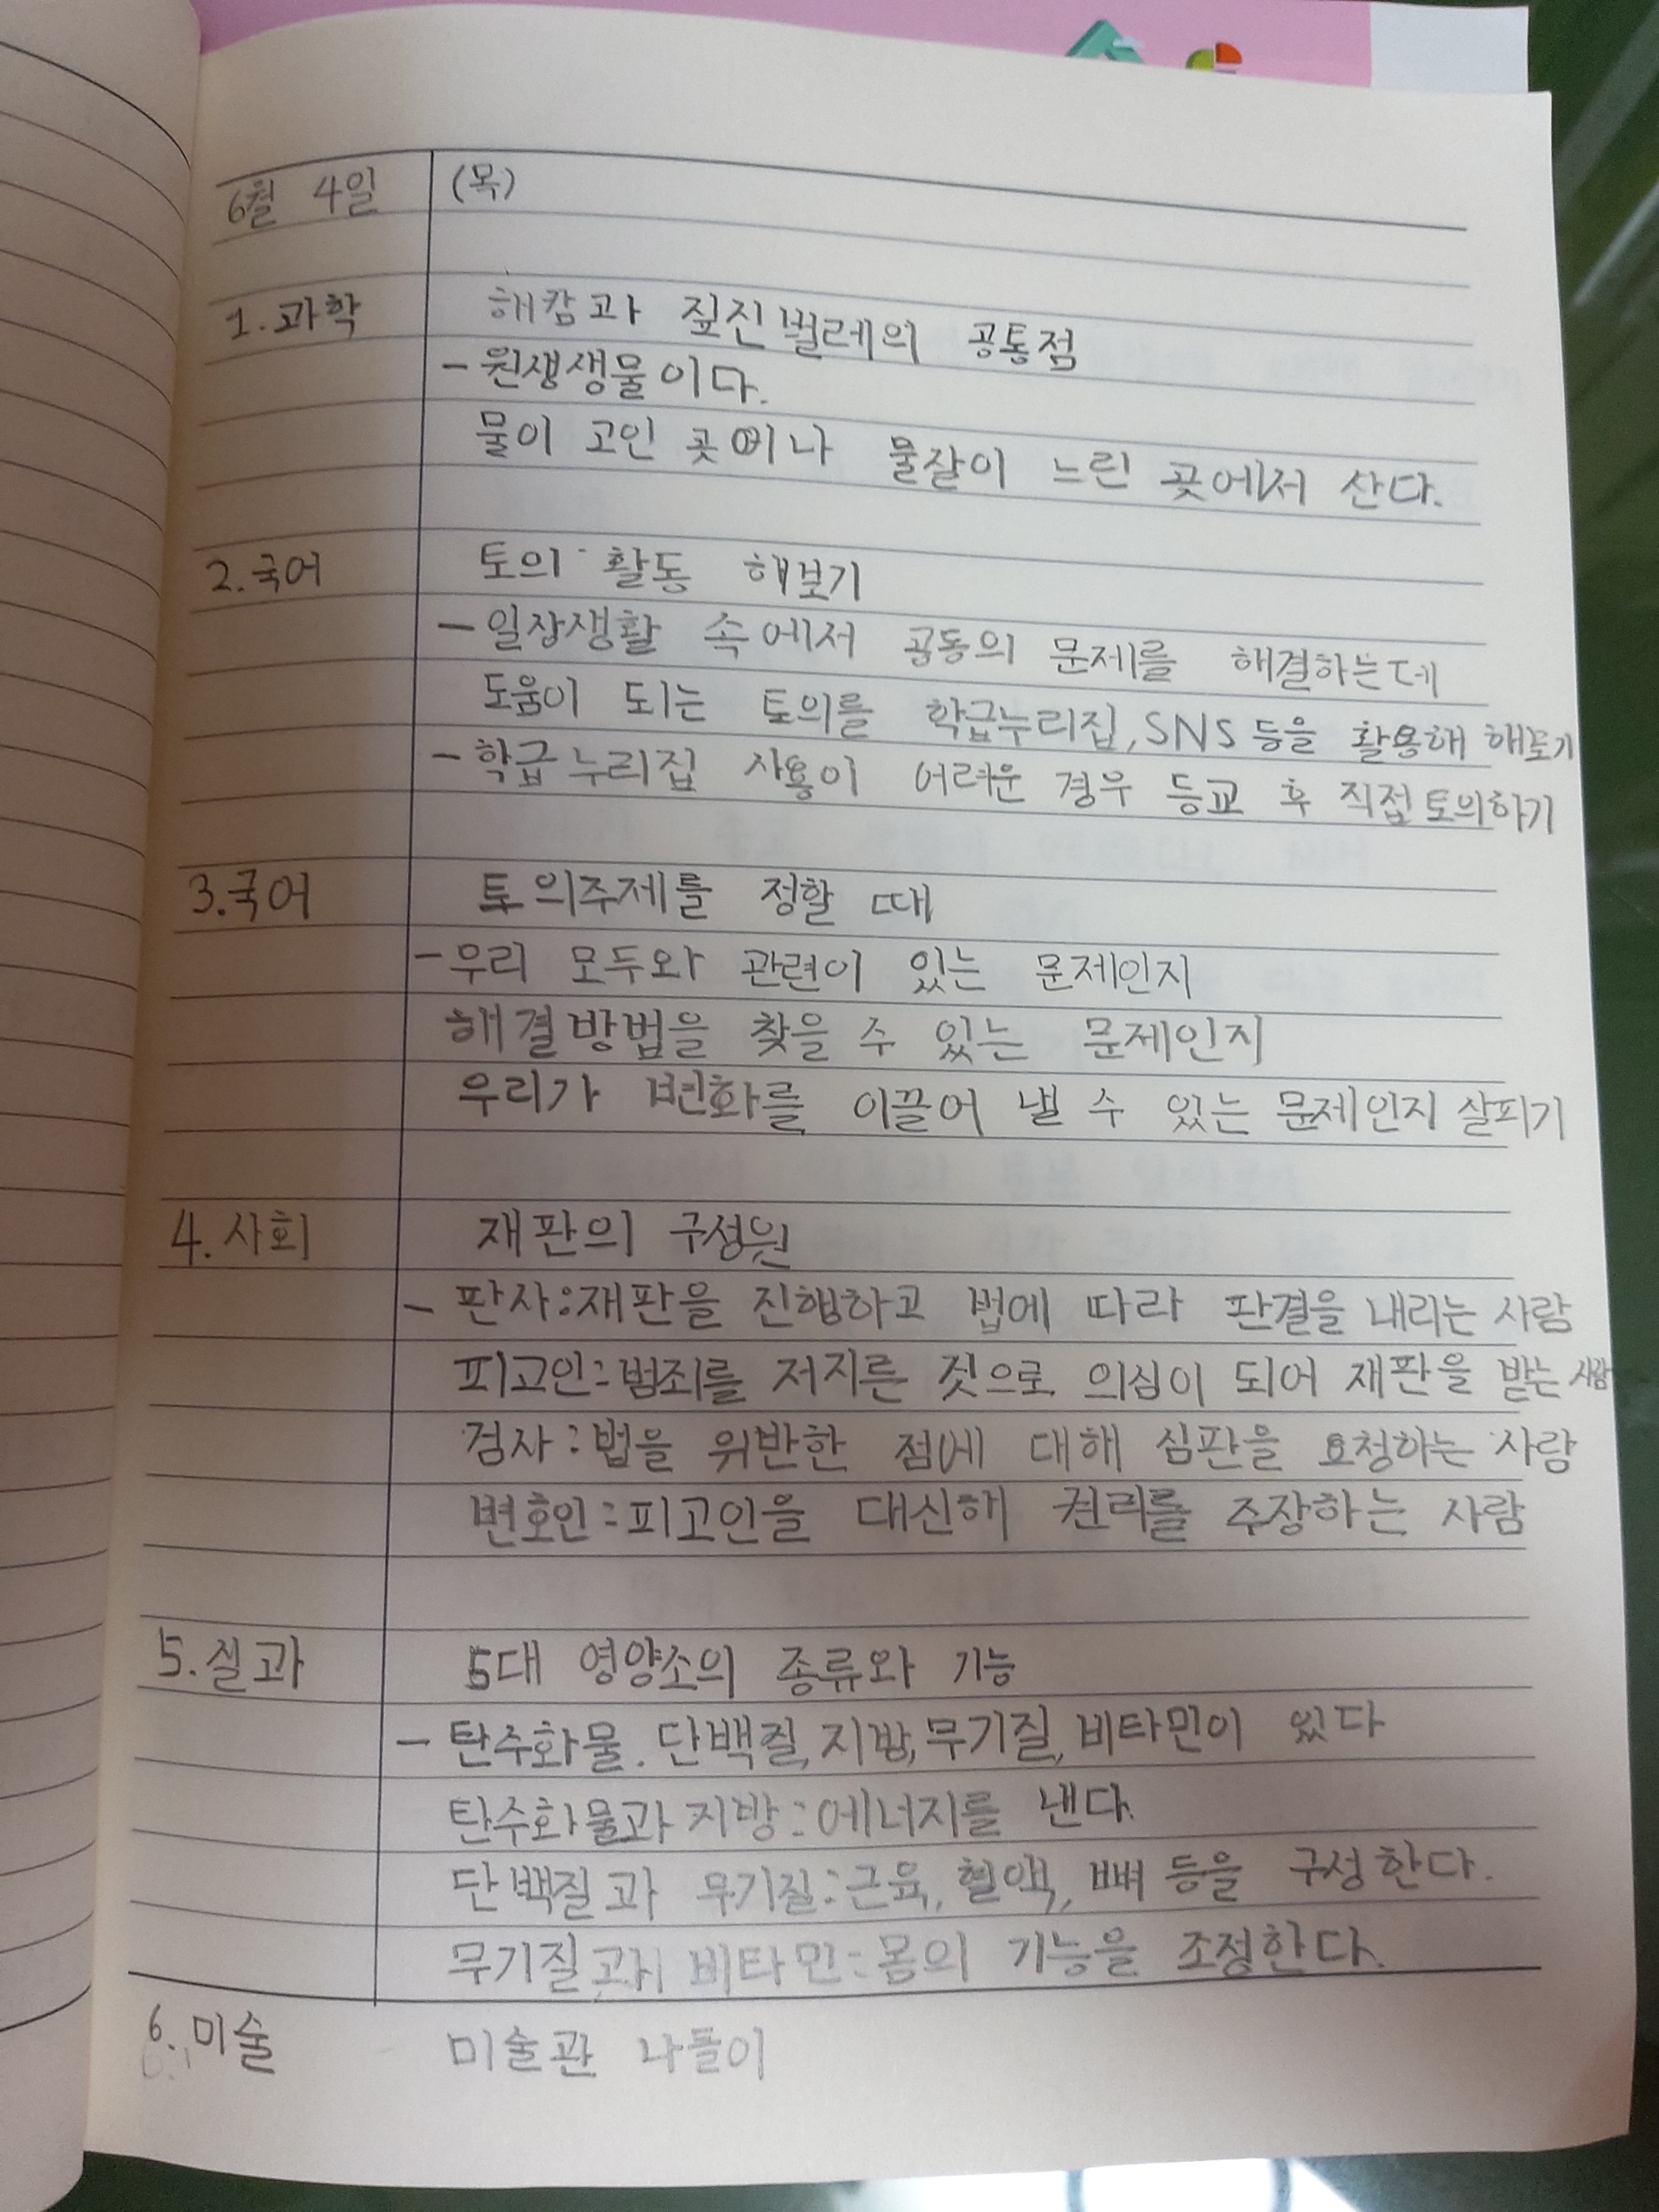 6월 4일 (목)
1. 과학 해캄과 짚진벌레의 공통점
- 원생생물이다.
물이 고인 곳에나 물살이 느린 곳에서 산다.
2. 국어 토의 활동 해보기
- 일상생활 속에서 공동의 문제를 해결하는데
도움이 되는 토의를 학급누리집, SNS 등을 활용해 해보기
- 학급누리집 사용이 어려운 경우 등교 후 직접토의하기
3. 국어 토의주제를 정할 때
- 우리 모두와 관련이 있는 문제인지
해결방법을 찾을 수 있는 문제인지
우리가 변화를 이끌어 낼 수 있는 문제인지 살피기
4. 사회 재판의 구성원
- 판사:재판을 진행하고 법에 따라 판결을 내리는 사람
피고인:범죄를 저지른 것으로 의심이 되어 재판을 받는 사람
검사:법을 위반한 점에 대해 심판을 요청하는 사람
변호인:피고인을 대신해 권리를 주장하는 사람
5. 실과 5대 영양소의 종류와 기능
- 탄수화물. 단백질, 지방, 무기질, 비타민이 있다
탄수화물과 지방:에너지를 낸다.
단백질과 무기질:근육, 혈액, 뼈 등을 구성한다.
무기질과 비타민:몸의 기능을 조정한다.
6. 미술 미술관 나들이